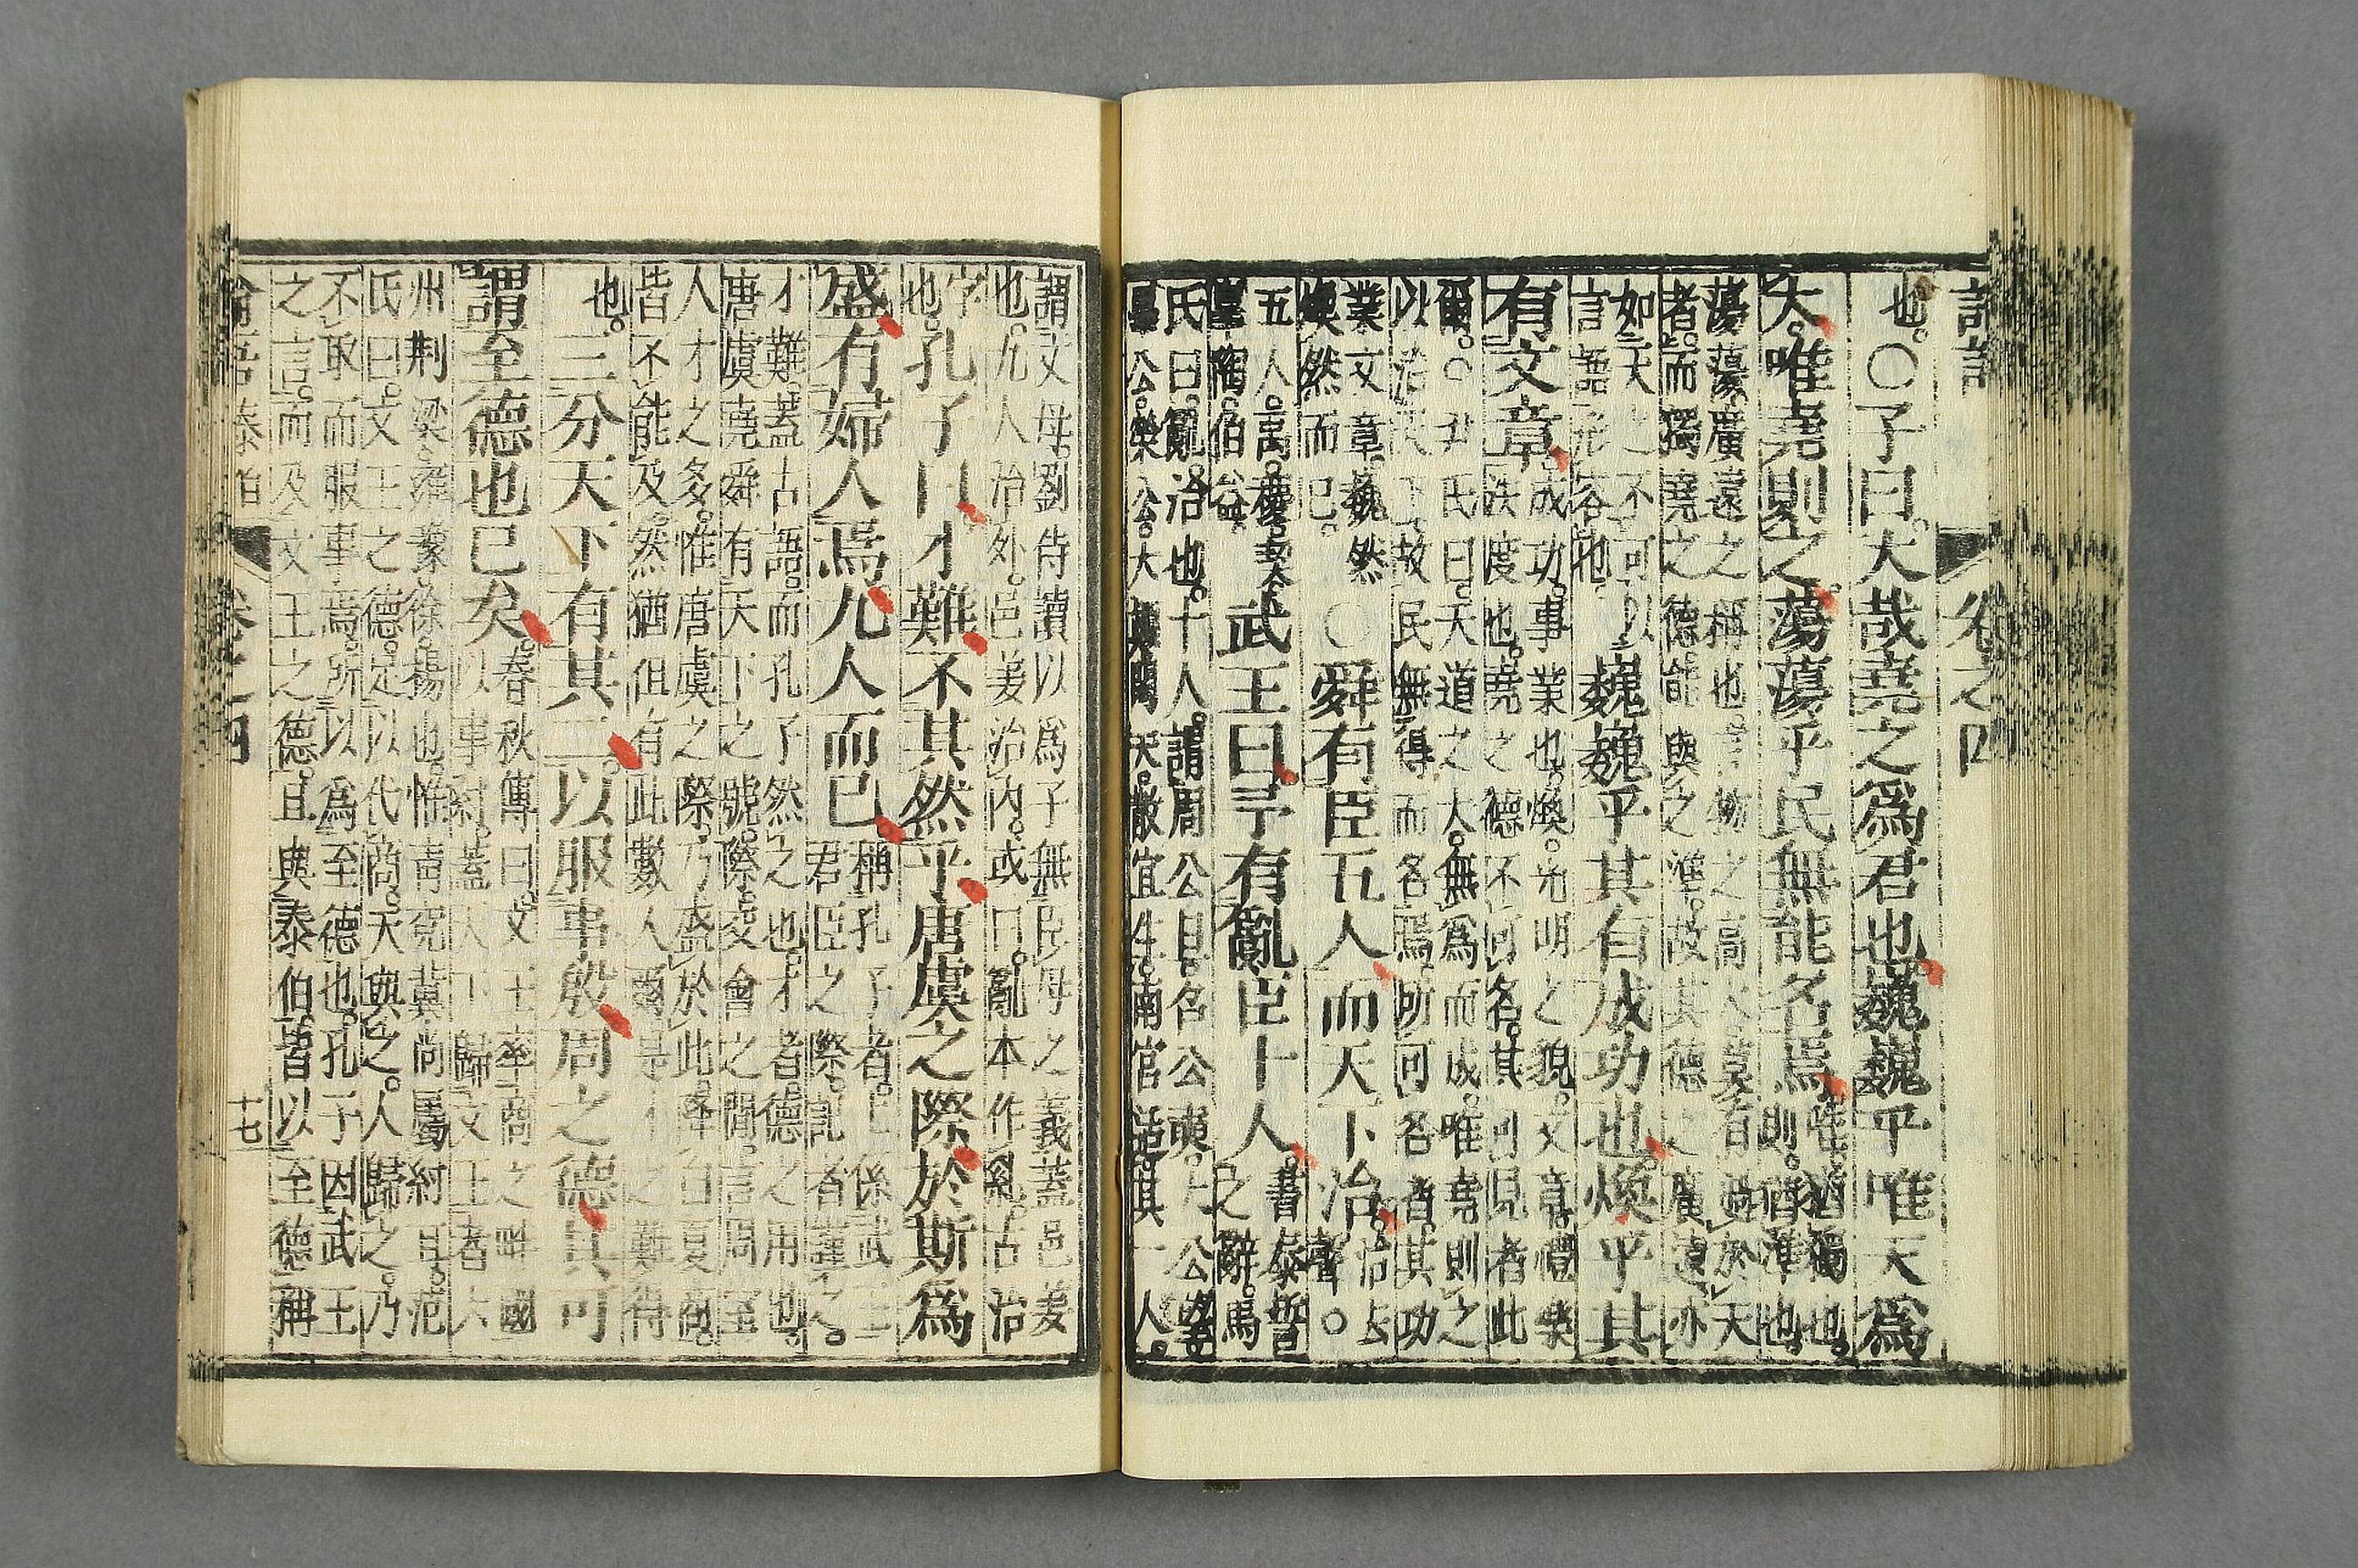 卷之四
也。〇子曰。大哉堯之爲君也。巍巍乎唯天爲
大。唯堯則之。蕩蕩乎民無能名焉。
唯。猶獨也。
則。猶準也。
蕩蕩。廣遠之稱也。言物之高大。莫有過於天
者。而獨堯之德。能與之準。故其德之廣遠。亦
如天之不可以
言語形容也。
巍巍乎其有成功也。煥乎其
有文章。
成功。事業也。煥。光明之貌。文章。禮樂
法度也。堯之德不可名。其可見者此
爾。〇尹氏曰。天道之大。無爲而成。唯堯則之
以治天下。故民無得而名焉。所可名者。其功
業文章巍然
煥然而已。
〇舜有臣五人而天下治。
治去
聲。〇
五人。禹。稷。契。
皋陶。伯益。
武王曰。予有亂臣十人。
書泰誓
之辭。馬
氏曰。亂。治也。十人。謂周公旦。召公奭。太公望。
畢公。榮公。大顛。閎夭。散宜生。南宮适。其一人。
謂文母。劉侍讀以爲子無臣母之義。蓋邑姜
也。九人治外。邑姜治內。或曰。亂本作乿。古治
字
也。
孔子曰。才難。不其然乎。唐虞之際。於斯爲
盛。有婦人焉。九人而已。
稱孔子者。上係武王
君臣之際。記者謹之。
才難。蓋古語。而孔子然之也。才者。德之用也。
唐虞。堯舜有天下之號。際。交會之間。言周室
人才之多。惟唐虞之際。乃盛於此。降自夏商。
皆不能及。然猶但有此數人爾。是才之難得
也。
三分天下有其二。以服事殷。周之德。其可
謂至德也已矣。
春秋傳曰。文王率商之畔國
以事紂。蓋天下歸文王者六
州。荆梁雍豫徐揚也。惟青兗冀尚屬紂耳。范
氏曰。文王之德。足以代商。天與之。人歸之。乃
不取而服事焉。所以爲至德也。孔子因武王
之言。而及文王之德。且與泰伯。皆以至德稱
論語泰伯 卷之四 十七